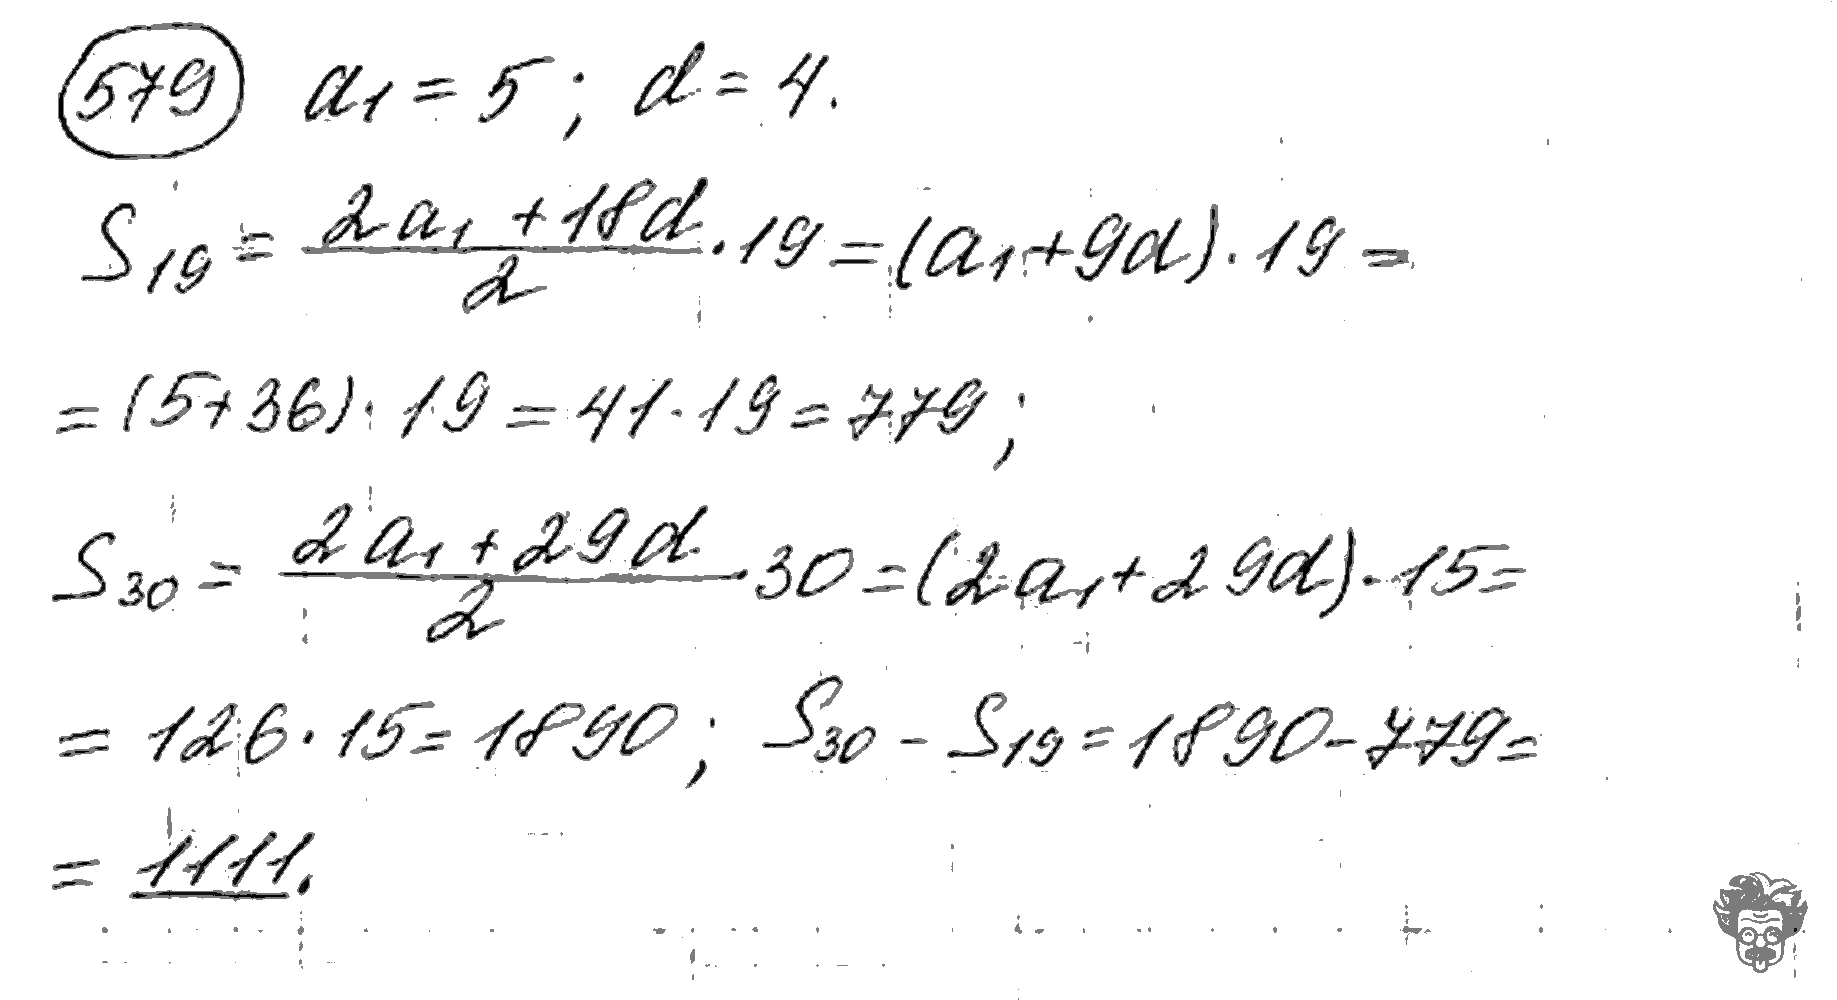 579 a₁ = 5; d = 4.
S₁₉ = (2a₁ + 18d)/2 · 19 = (a₁ + 9d) · 19 =
= (5+36) · 19 = 41 · 19 = 779;
S₃₀ = (2a₁ + 29d)/2 · 30 = (2a₁ + 29d) · 15 =
= 126 · 15 = 1890; S₃₀ - S₁₉ = 1890 - 779 =
= 1111.